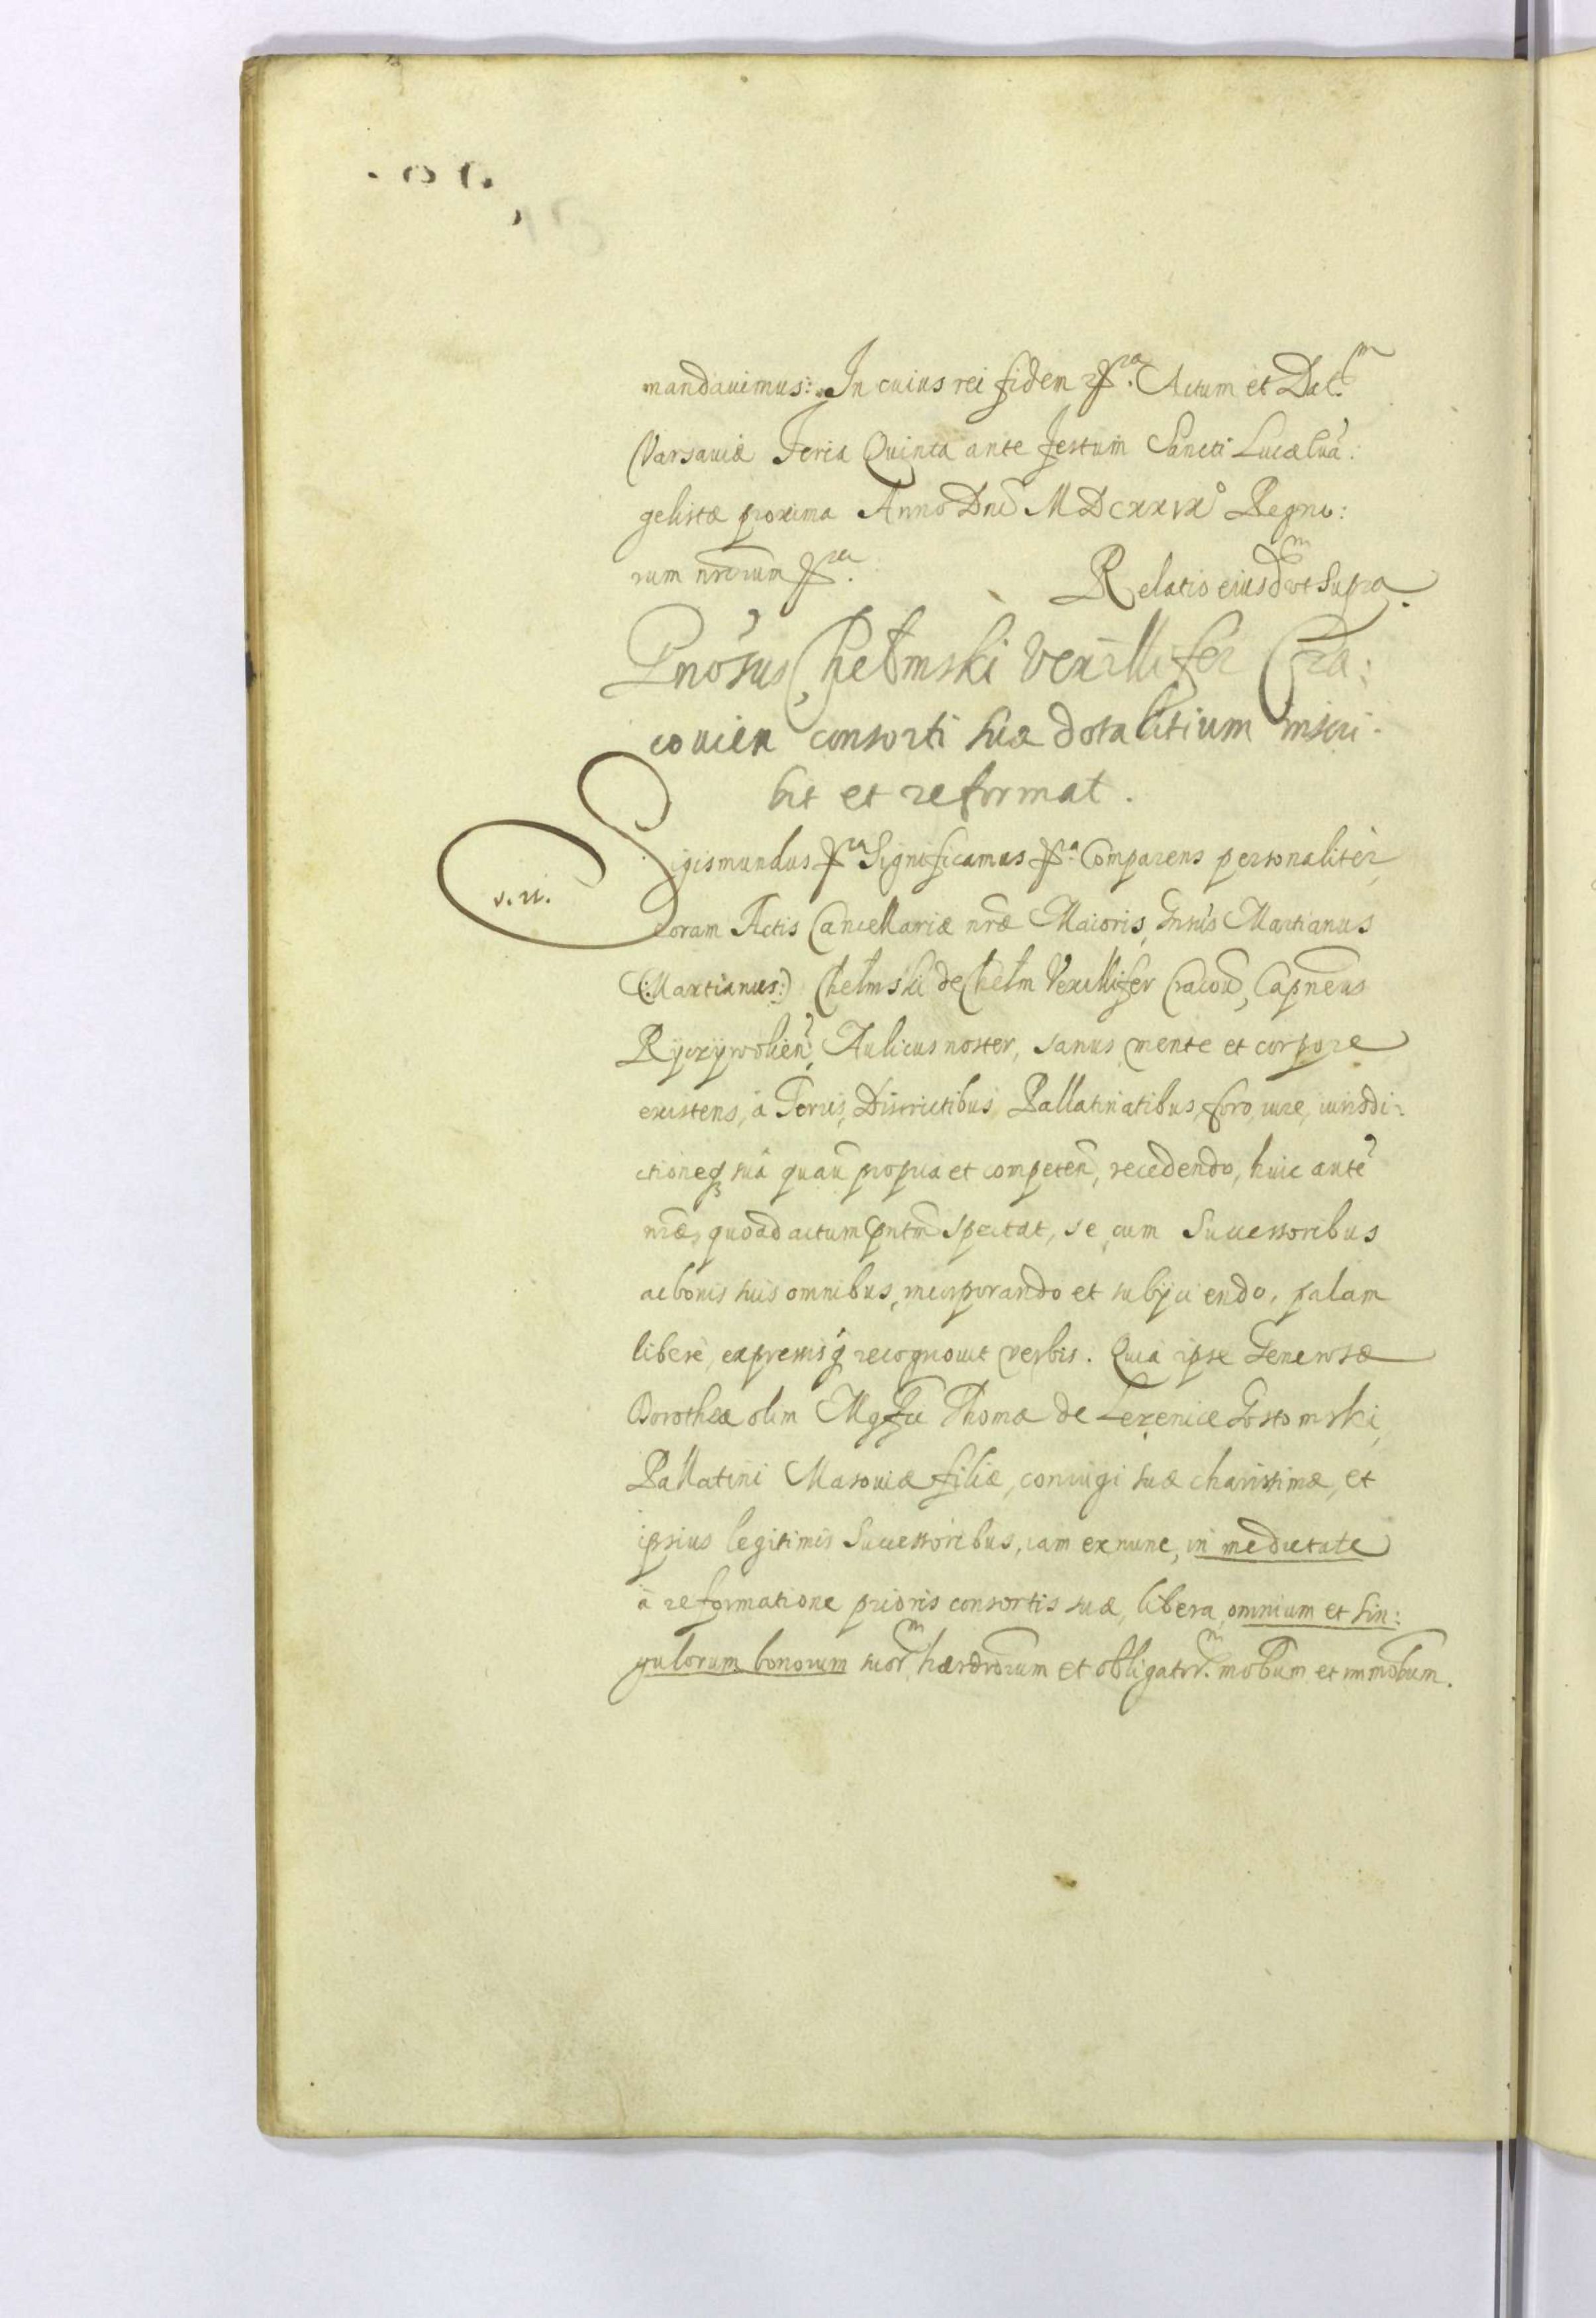 mandauimus: In cuius rei fidem etc^ra. Actum et Dat^m.
Varsauiæ Feria Quinta ante festum Sancti Lucæ Eua:
gelistæ proxima Anno Dni MDCXXIX° Regno:
rum nrorum etc^ra.
Relatio eiusd^m vt supra.
Gnosus Chełmski Vexillifer Cra:
couien consorti suæ dotalitium inscri:
bit et reformat.
Sigismundus etc^ra Significamus etc^ra Comparens personaliter
coram Actis Cancellariæ nræ Maioris, Gnsus Martianus
(:Martianus:) Chełmski de Chełm Vexillifer Cracou, Capneus
Ryczywolien, Aulicus noster, sanus mente et corpore
existens, à Terris, Districtibus, Pallatinatibus, foro, iure, iurisdi:
ctioneq3 suâ quauis propria et competen, recedendo, huic autem
nræ, quoad actum pntem spectat, se cum Successoribus
ac bonis suis omnibus, incorporando et subijciendo, palam
liberè, expressisq3 recognouit verbis. Quia ipse Generosæ
Dorotheæ olim Mgfci Thomæ de Lezenice Gostomski,
Pallatini Masouiæ filiæ, coniugi suæ charissimæ, et
ipsius legitimis Successoribus, iam ex nunc, in medietate
à reformatione prioris consortis suæ, libera, omnium et sin:
gulorum bonorum suor^m hærdrorum et obligator^m. mobium et immobium.
v. r.